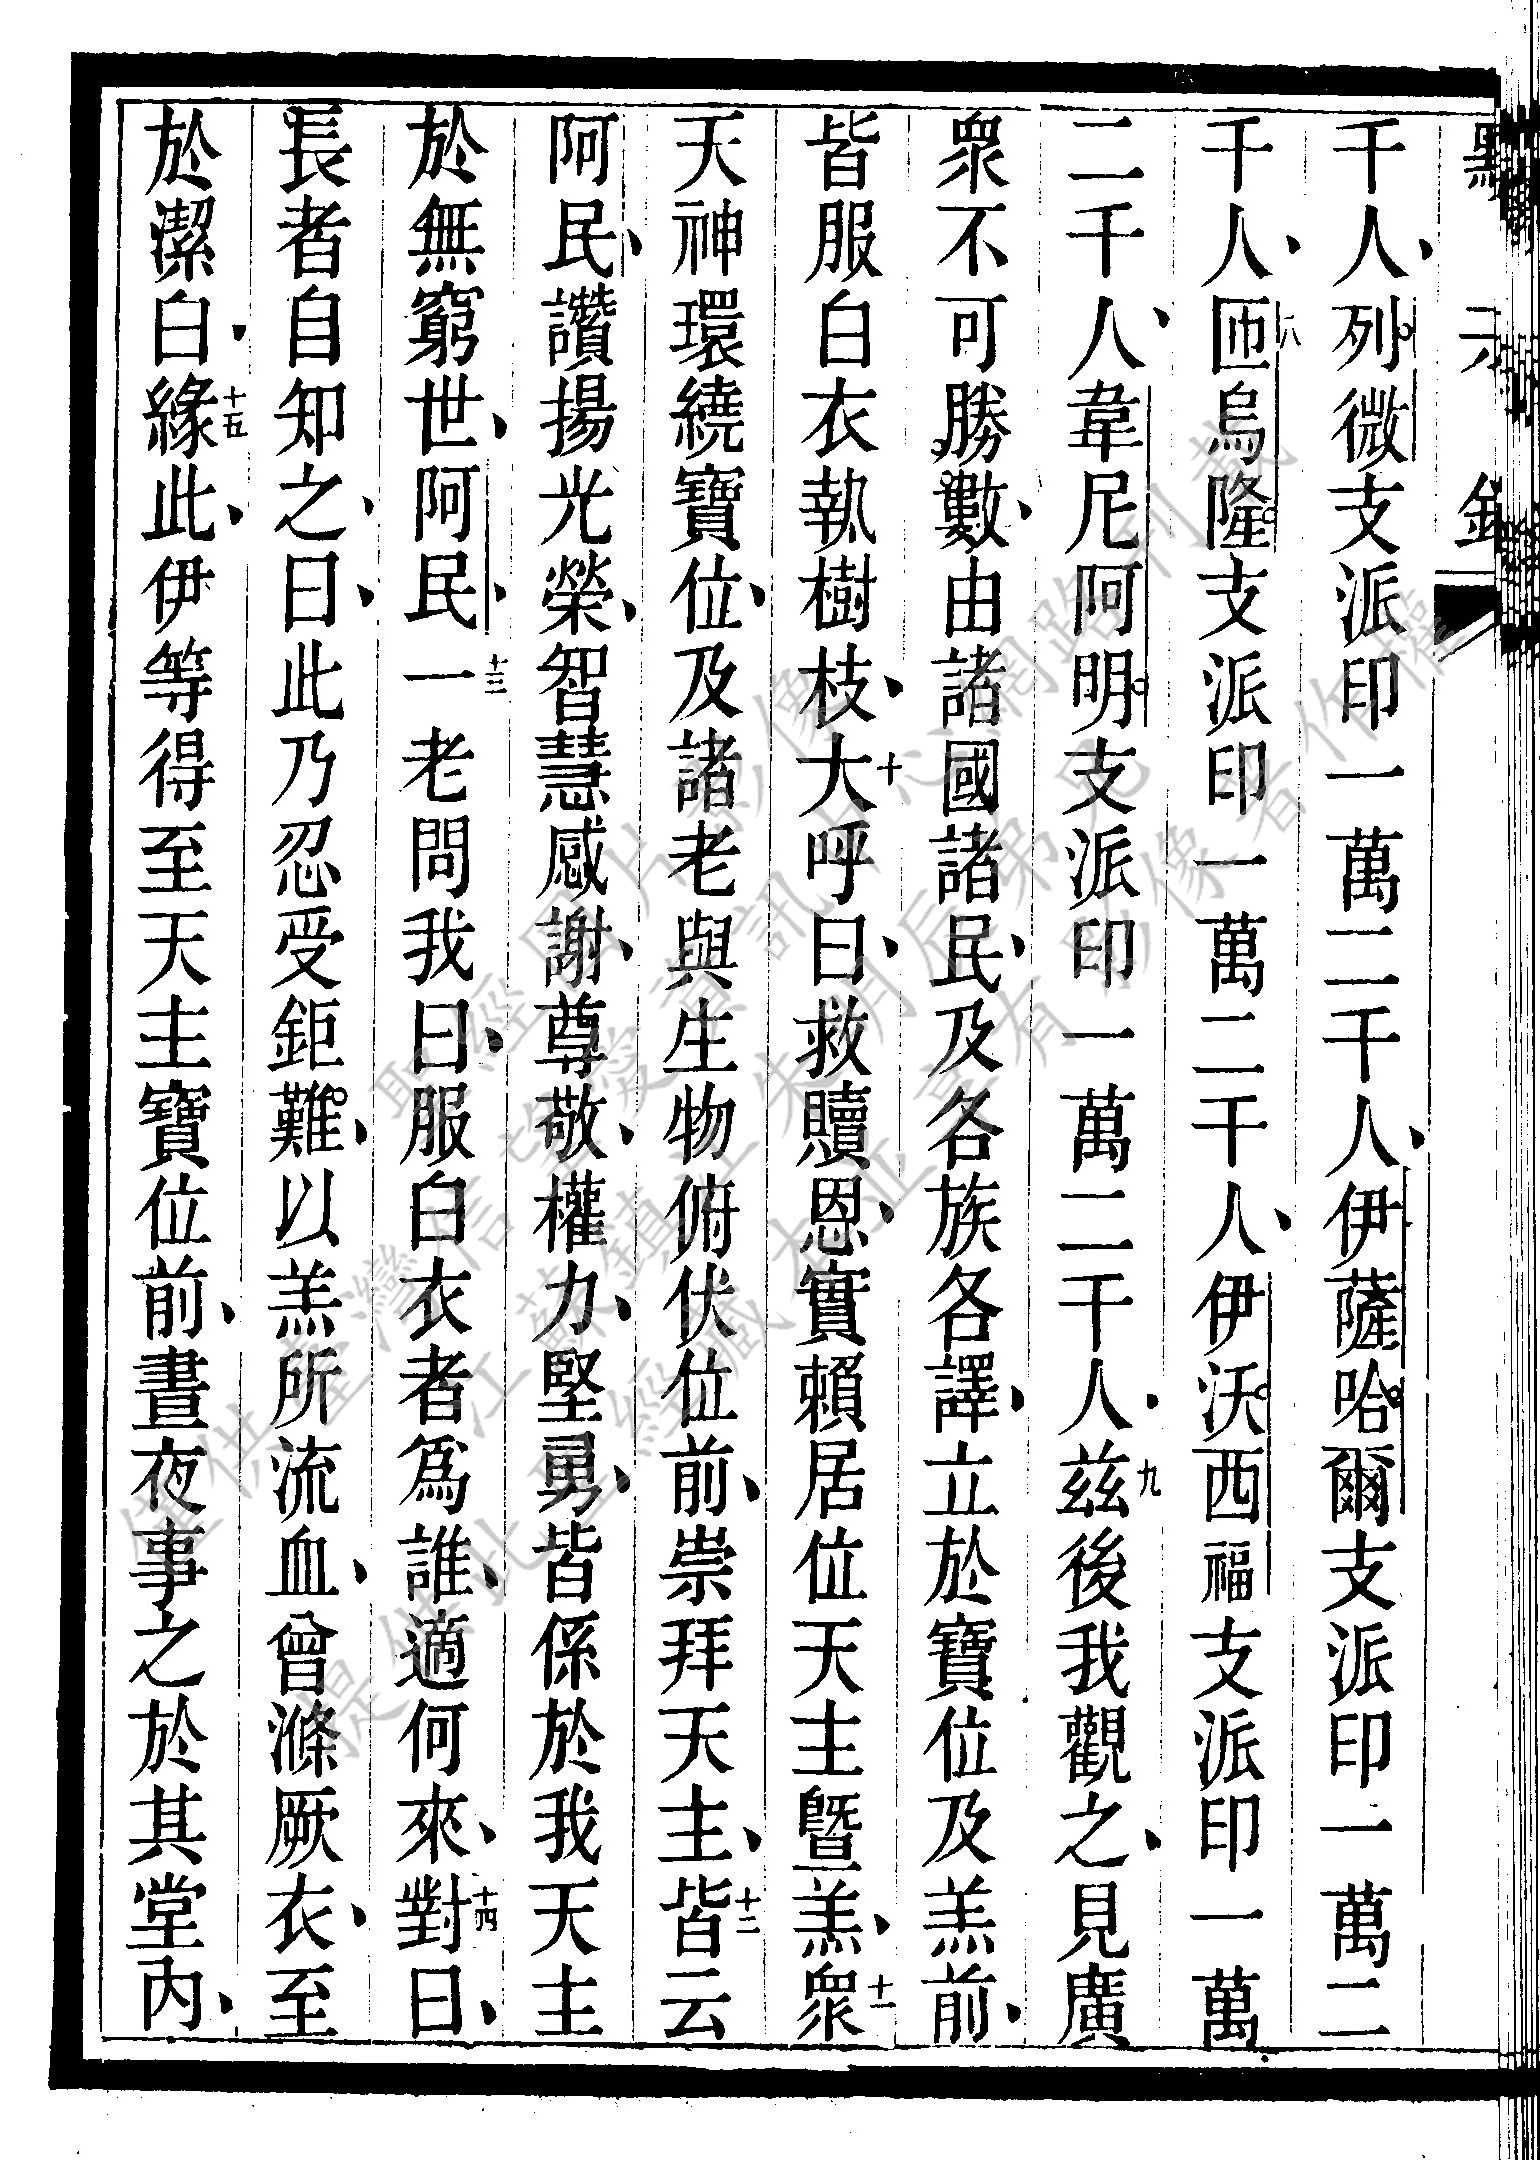 千人、列微支派印一萬二千人、伊薩哈爾支派印一萬二
千人、八匝烏隆支派印一萬二千人、伊沃西福支派印一萬
二千人、韋尼阿明支派印一萬二千人、九玆後我觀之、見廣
衆不可勝數、由諸國諸民、及各族各譯、立於寶位及羔前、
皆服白衣執樹枝、十大呼曰、救贖恩、實賴居位天主曁羔、十一衆
天神環繞寶位、及諸老與生物俯伏位前、崇拜天主、十二皆云
阿民、讚揚光榮、智慧感謝、尊敬、權力、堅勇、皆係於我天主
於無窮世、阿民、十三一老問我曰、服白衣者爲誰、適何來、十四對曰、
長者自知之、曰、此乃忍受鉅難、以羔所流血、曾滌厥衣、至
於潔白、十五緣此、伊等得至天主寶位前、晝夜事之於其堂内、